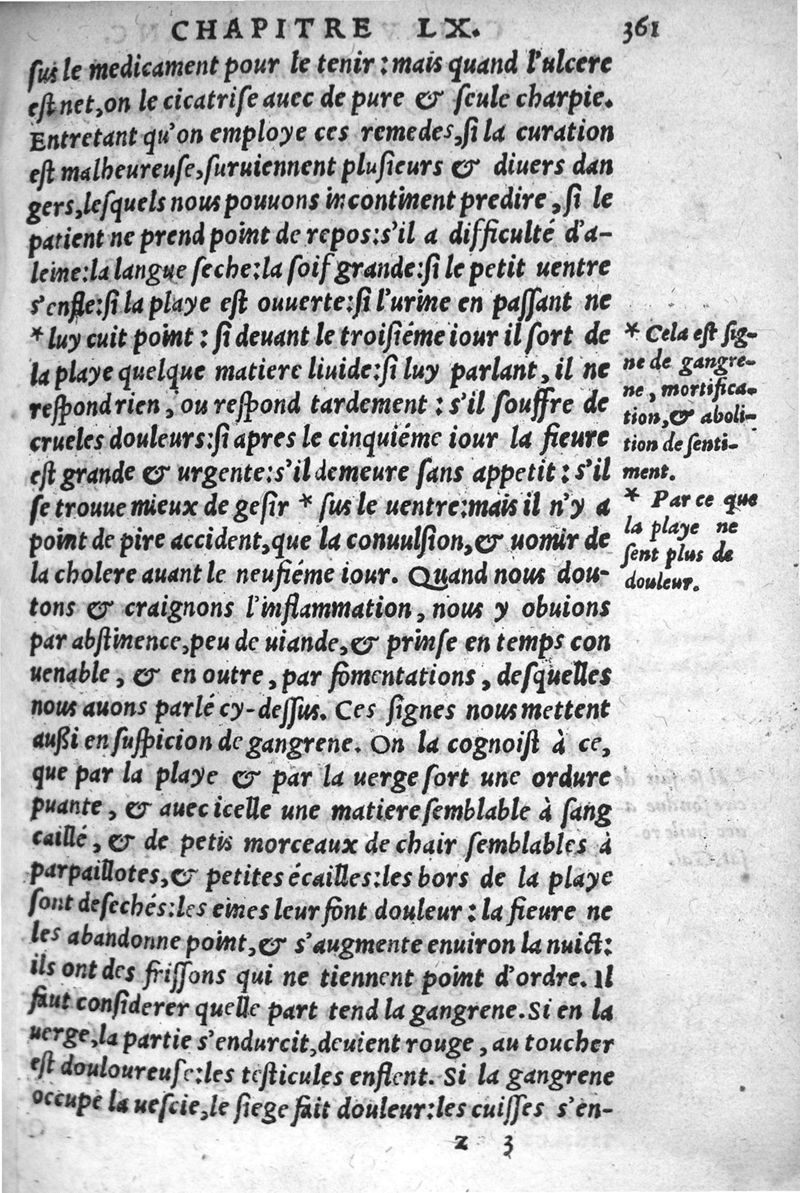 CHAPITRE LX. 361
sus le medicament pour le tenir: mais quand l'ulcere
est net, on le cicatrise auec de pure & seule charpie.
Entretant qu'on employe ces remedes, si la curation
est malheureuse, suruiennent plusieurs & diuers dan
gers, lesquels nous pouuons incontinent predire, si le
patient ne prend point de repos: s'il a difficulté d'a-
leine: la langue seche: la soif grande: si le petit uentre
s'enfle: si la playe est ouuerte: si l'urine en passant ne
*luy cuit point: si deuant le troisiéme iour il sort de
la playe quelque matiere liuide: si luy parlant, il ne
respond rien, ou respond tardement: s'il souffre de
crueles douleurs: si apres le cinquiéme iour la fieure
est grande & urgente: s'il demeure sans appetit: s'il
se trouue mieux de gesir * sus le uentre: mais il n'y a
point de pire accident, que la conuulsion, & uomir de
la cholere auant le neufiéme iour. Quand nous dou-
tons & craignons l'inflammation, nous y obuions
par abstinence, peu de uiande, & prinse en temps con
uenable, & en outre, par fomentations, desquelles
nous auons parlé cy-dessus. Ces signes nous mettent
außi en suspicion de gangrene. On la cognoist à ce,
que par la playe & par la uerge sort une ordure
puante, & auec icelle une matiere semblable à sang
caillé, & de petis morceaux de chair semblables à
parpaillotes, & petites écailles: les bors de la playe
sont desechés: les eines leur font douleur: la fieure ne
les abandonne point, & s'augmente enuiron la nuict:
ils ont des frissons qui ne tiennent point d'ordre. Il
faut considerer quelle part tend la gangrene. Si en la
uerge, la partie s'endurcit, deuient rouge, au toucher
est douloureuse: les testicules enflent. Si la gangrene
occupe la uescie, le siege fait douleur: les cuisses s'en-
z 3
* Cela est sig-
ne de gangre-
ne, mortifica-
tion, & aboli-
tion de senti-
ment.
* Par ce que
la playe ne
sent plus de
douleur.